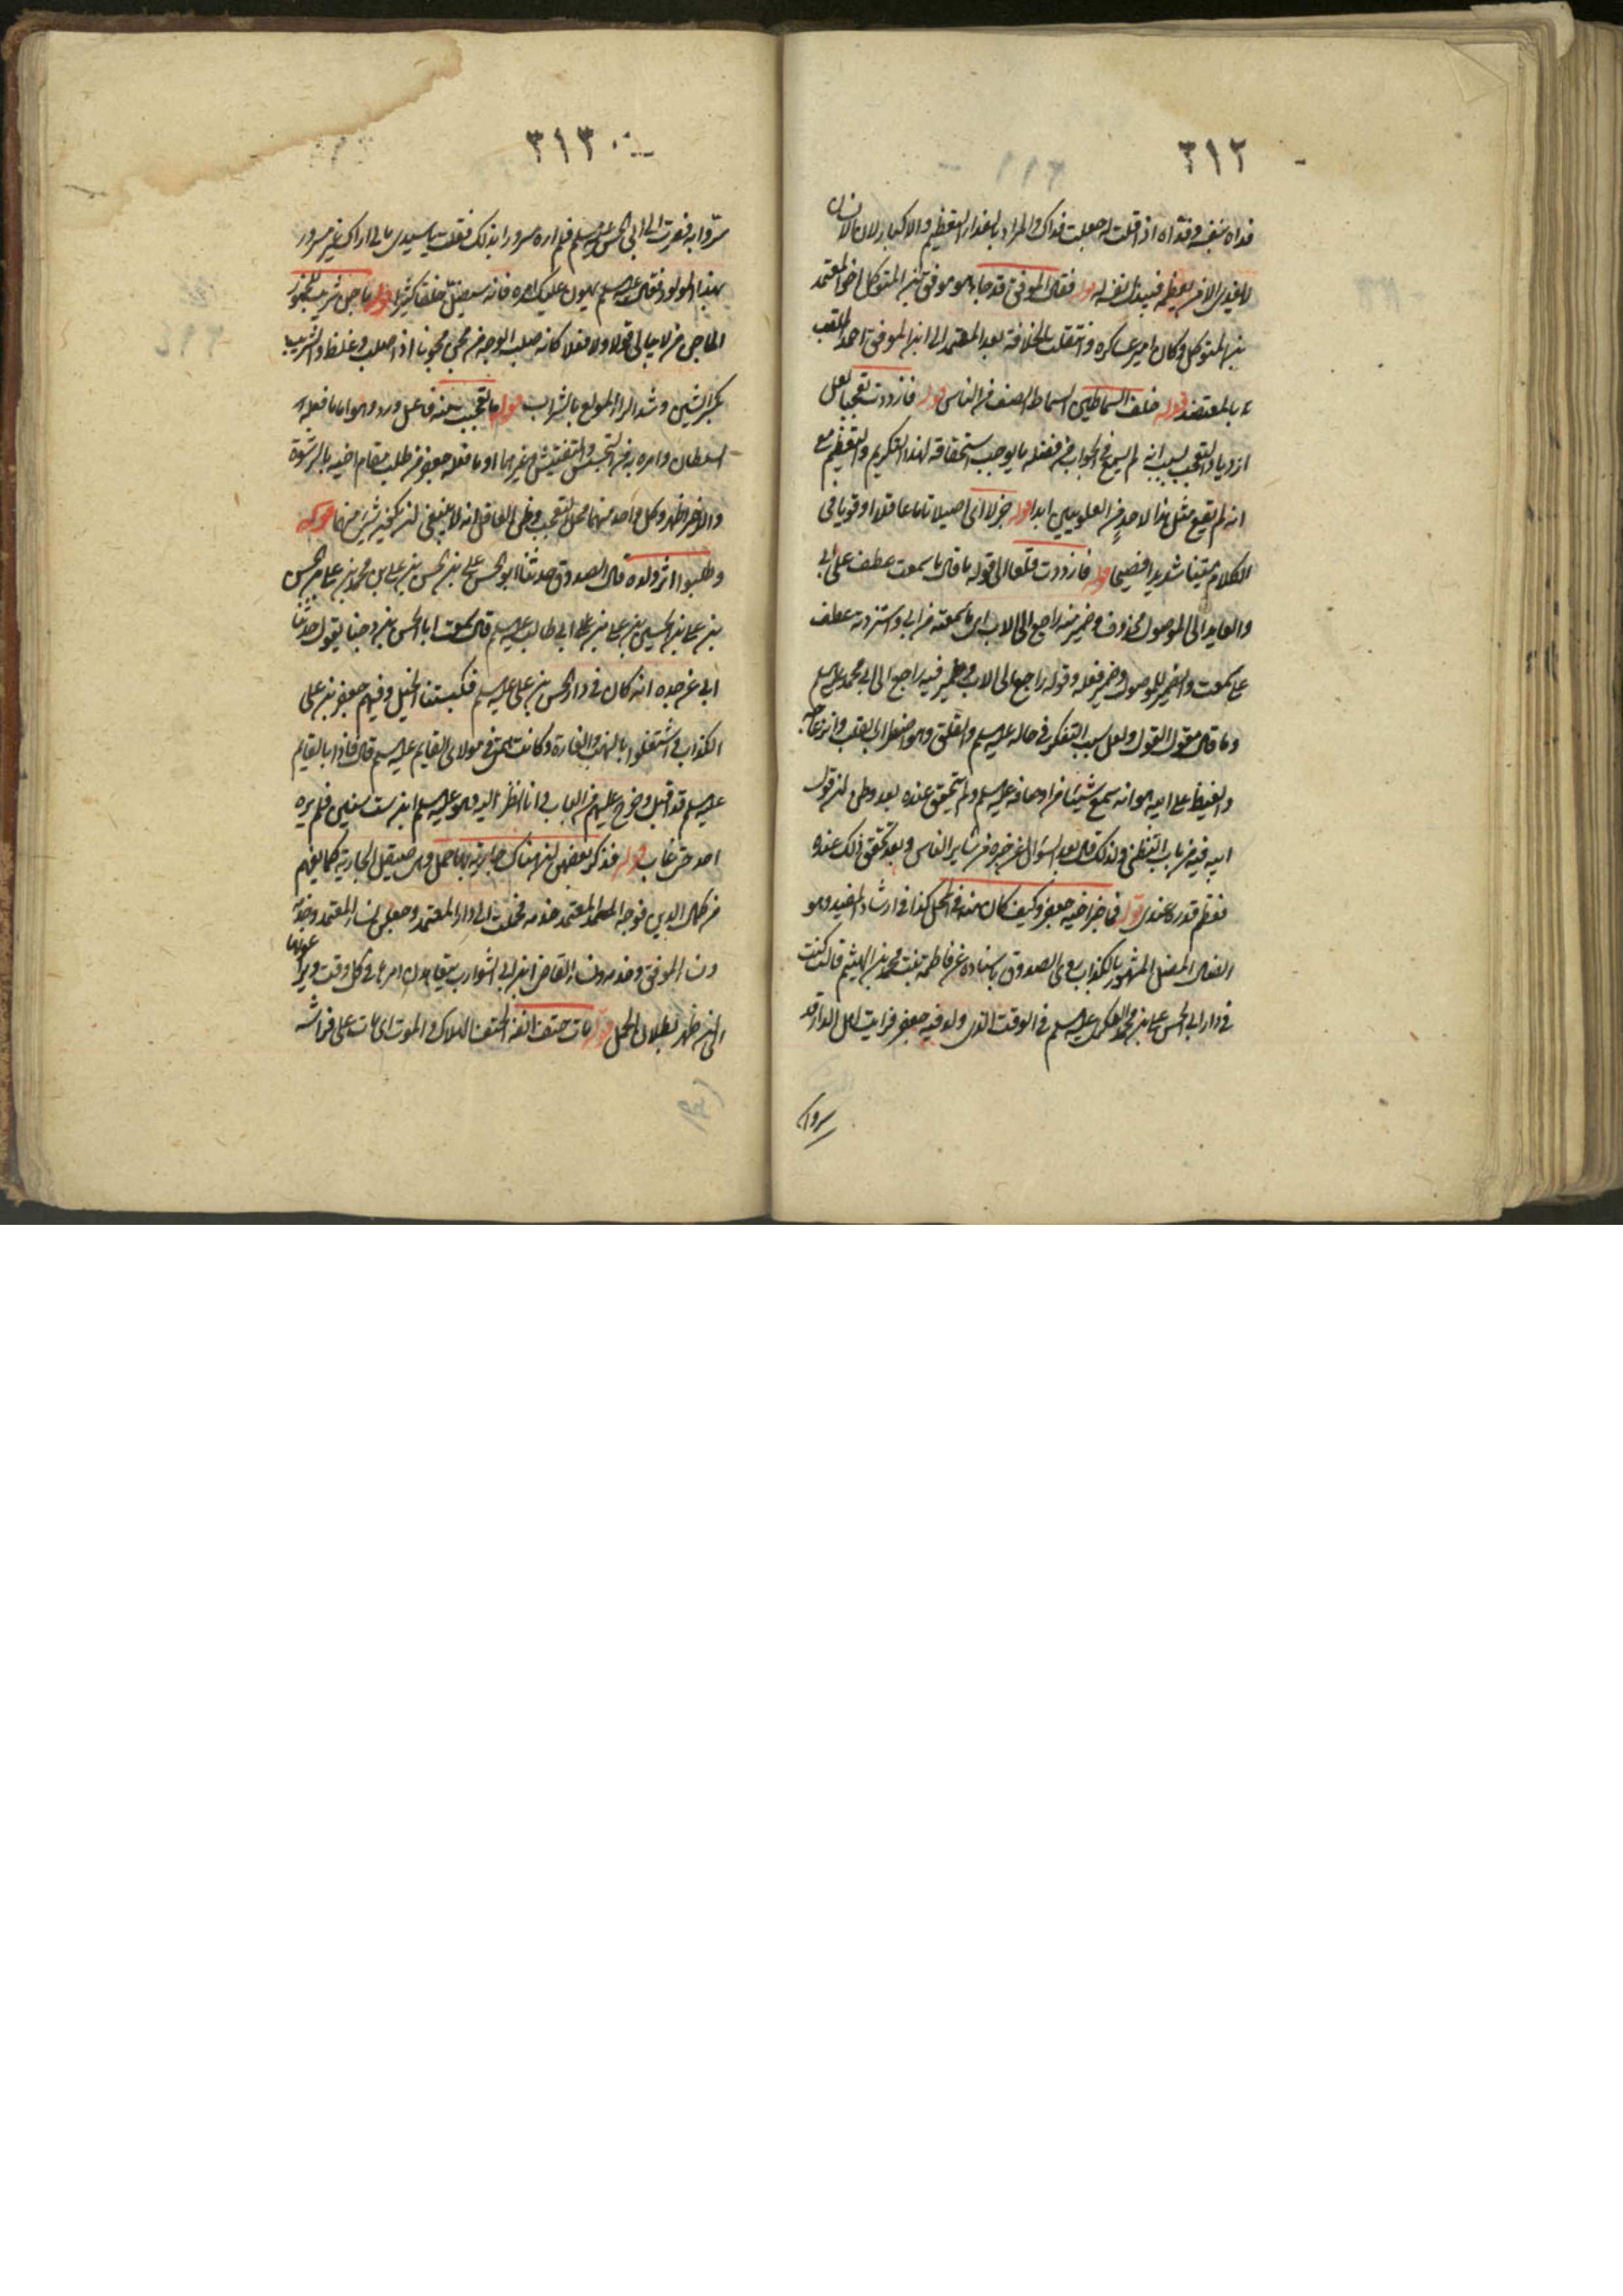 ٣١٢
فداه بنفسه وفداه اذا قلت له جعلت فداك والمراد بالفداء التعظيم والاكبار لان الانسان
لا يفدي الا من يعظمه فيبذل نفسه له قوله فقال الموفق قد جاء هو موفق بن المتوكل اخو المعتمد
بن المتوكل وكان امير عساكره وانتقلت الخلافة بعد المعتمد الى ابن الموفق احمد الملقب
بالمعتضد قوله خلف السماطين السماط الصف من الناس قوله فازددت تعجبا لعل
ازدياد التعجب بسبب انه لم يسمع في الجواب من فضله ما يوجب استحقاقه لهذا التكريم والتعظيم مع
انه لم يقع مثل هذا لاحد من العلويين ابدا قوله جزلا اى اصيلا تاما عاقلا او قويا في
الكلام متينا شديدا فصيحا قوله فازددت قلقا الى قوله ما قال ما سمعت عطف على ابي
والعايد الى الموصول محذوف وضمير منه راجع الى الاب اى ما سمعته من ابي واستزدته عطف
على سمعت والضمير للموصول وضمير فعله وقوله راجع الى الاب وضمير فيه راجع الى ابي محمد عليه السلم
وما قال مقول القول ولعل سبب التفكر في حاله عليه السلم والقلق وهو اضطراب القلب وانزعاجه
والغيظ على ابيه هو انه سمع شيئا من اوصافه عليه السلم ولم يتحقق عنده بعد وظن ان قول
ابيه فيه من باب التظني ولذلك قال بعد السؤال عن خبره من ساير الناس وبعد تحقق ذلك عنده
فعظم قدره عندى قوله فما خبر اخيه جعفر وكيف كان منه في المحل كذا في ارشاد المفيد وهو
الضال المضل المشهور بالكذاب روى الصدوق باسناده عن فاطمة بنت محمد بن الهيثم قالت كنت
في دار ابي الحسن علي بن محمد العسكرى عليه السلم في الوقت الذى ولد فيه جعفر فرايت اهل الدار قد
سروا به
٣١٣
سروا به فصرت الى ابي الحسن عليه السلم فلم اره مسرورا بذلك فقلت يا سيدى مالي اراك غير مسرور
بهذا المولود فقال عليه السلم يهون عليك امره فانه سيضل خلقا كثيرا قوله ماجن شريب للخمور
الماجن من لا يبالي قولا ولا فعلا كانه صلب الوجه من مجن مجونا اذا صلب وغلظ والشريب
بكسر الشين وشد الراء المولع بالشراب قوله ما تعجبت منه فاعل ورد وهو اما ما فعله
السلطان وامره به من التجسس والتفتيش وغيرهما او ما فعله جعفر من طلب مقام اخيه بالرشوة
والاخر اظهر وكل واحد منهما محل التعجب وظني العاقل انه لا ينبغي ان يكون شئ منهما قوله
وطلبوا اثر ولده قال الصدوق حدثنا ابو الحسن علي بن الحسن بن علي بن محمد بن علي بن الحسن
بن علي بن الحسين بن علي بن علي ابي طالب عليهم السلم قال سمعت ابا الحسن بن وجنا يقول حدثنا
ابي عن جده انه كان في دار الحسن بن علي عليه السلم فكبستنا الخيل وفيهم جعفر بن علي
الكذاب واشتغلوا بالنهب والغارة وكانت همتي في مولاى القايم عليه السلم قال فاذا بالقايم
عليه السلم قد اقبل وخرج عليهم من الباب وانا انظر اليه وهو عليه السلم ابن ست سنين فلم يره
احد حتى غاب قوله فذكر بعضهن ان هناك جارية بها حمل وهى صقيل الجارية كما يفهم
من كمال الدين فوجه المعتمد خدمه فحملت الى دار المعتمد وجعل نساء المعتمد وخدمه
ونساء الموفق وخدمه ونساء القاضى ابن ابي الشوارب يتعاهدن امرها في كل وقت ويراعونها
الى ان ظهر بطلان الحمل قوله مات حتف انفه الحتف الهلاك والموت اى مات على فراشه